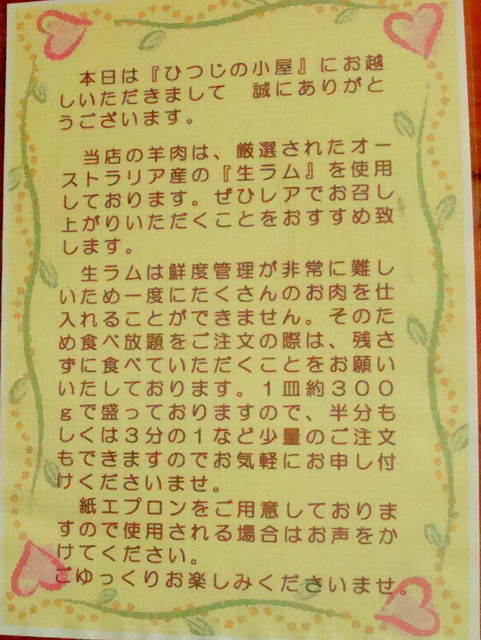 本日は『ひつじの小屋』にお越
しいただきまして　誠にありがと
うございます。
当店の羊肉は、厳選されたオー
ストラリア産の『生ラム』を使用
しております。ぜひレアでお召し
上がりいただくことをおすすめ致
します。
生ラムは鮮度管理が非常に難し
いため一度にたくさんのお肉を仕
入れることができません。そのた
め食べ放題をご注文の際は、残さ
ずに食べていただくことをお願い
いたしております。１皿約３００
ｇで盛っておりますので、半分も
しくは３分の１など少量のご注文
もできますのでお気軽にお申し付
けくださいませ。
紙エプロンをご用意しておりま
すので使用される場合はお声をか
けてください。
ごゆっくりお楽しみくださいませ。